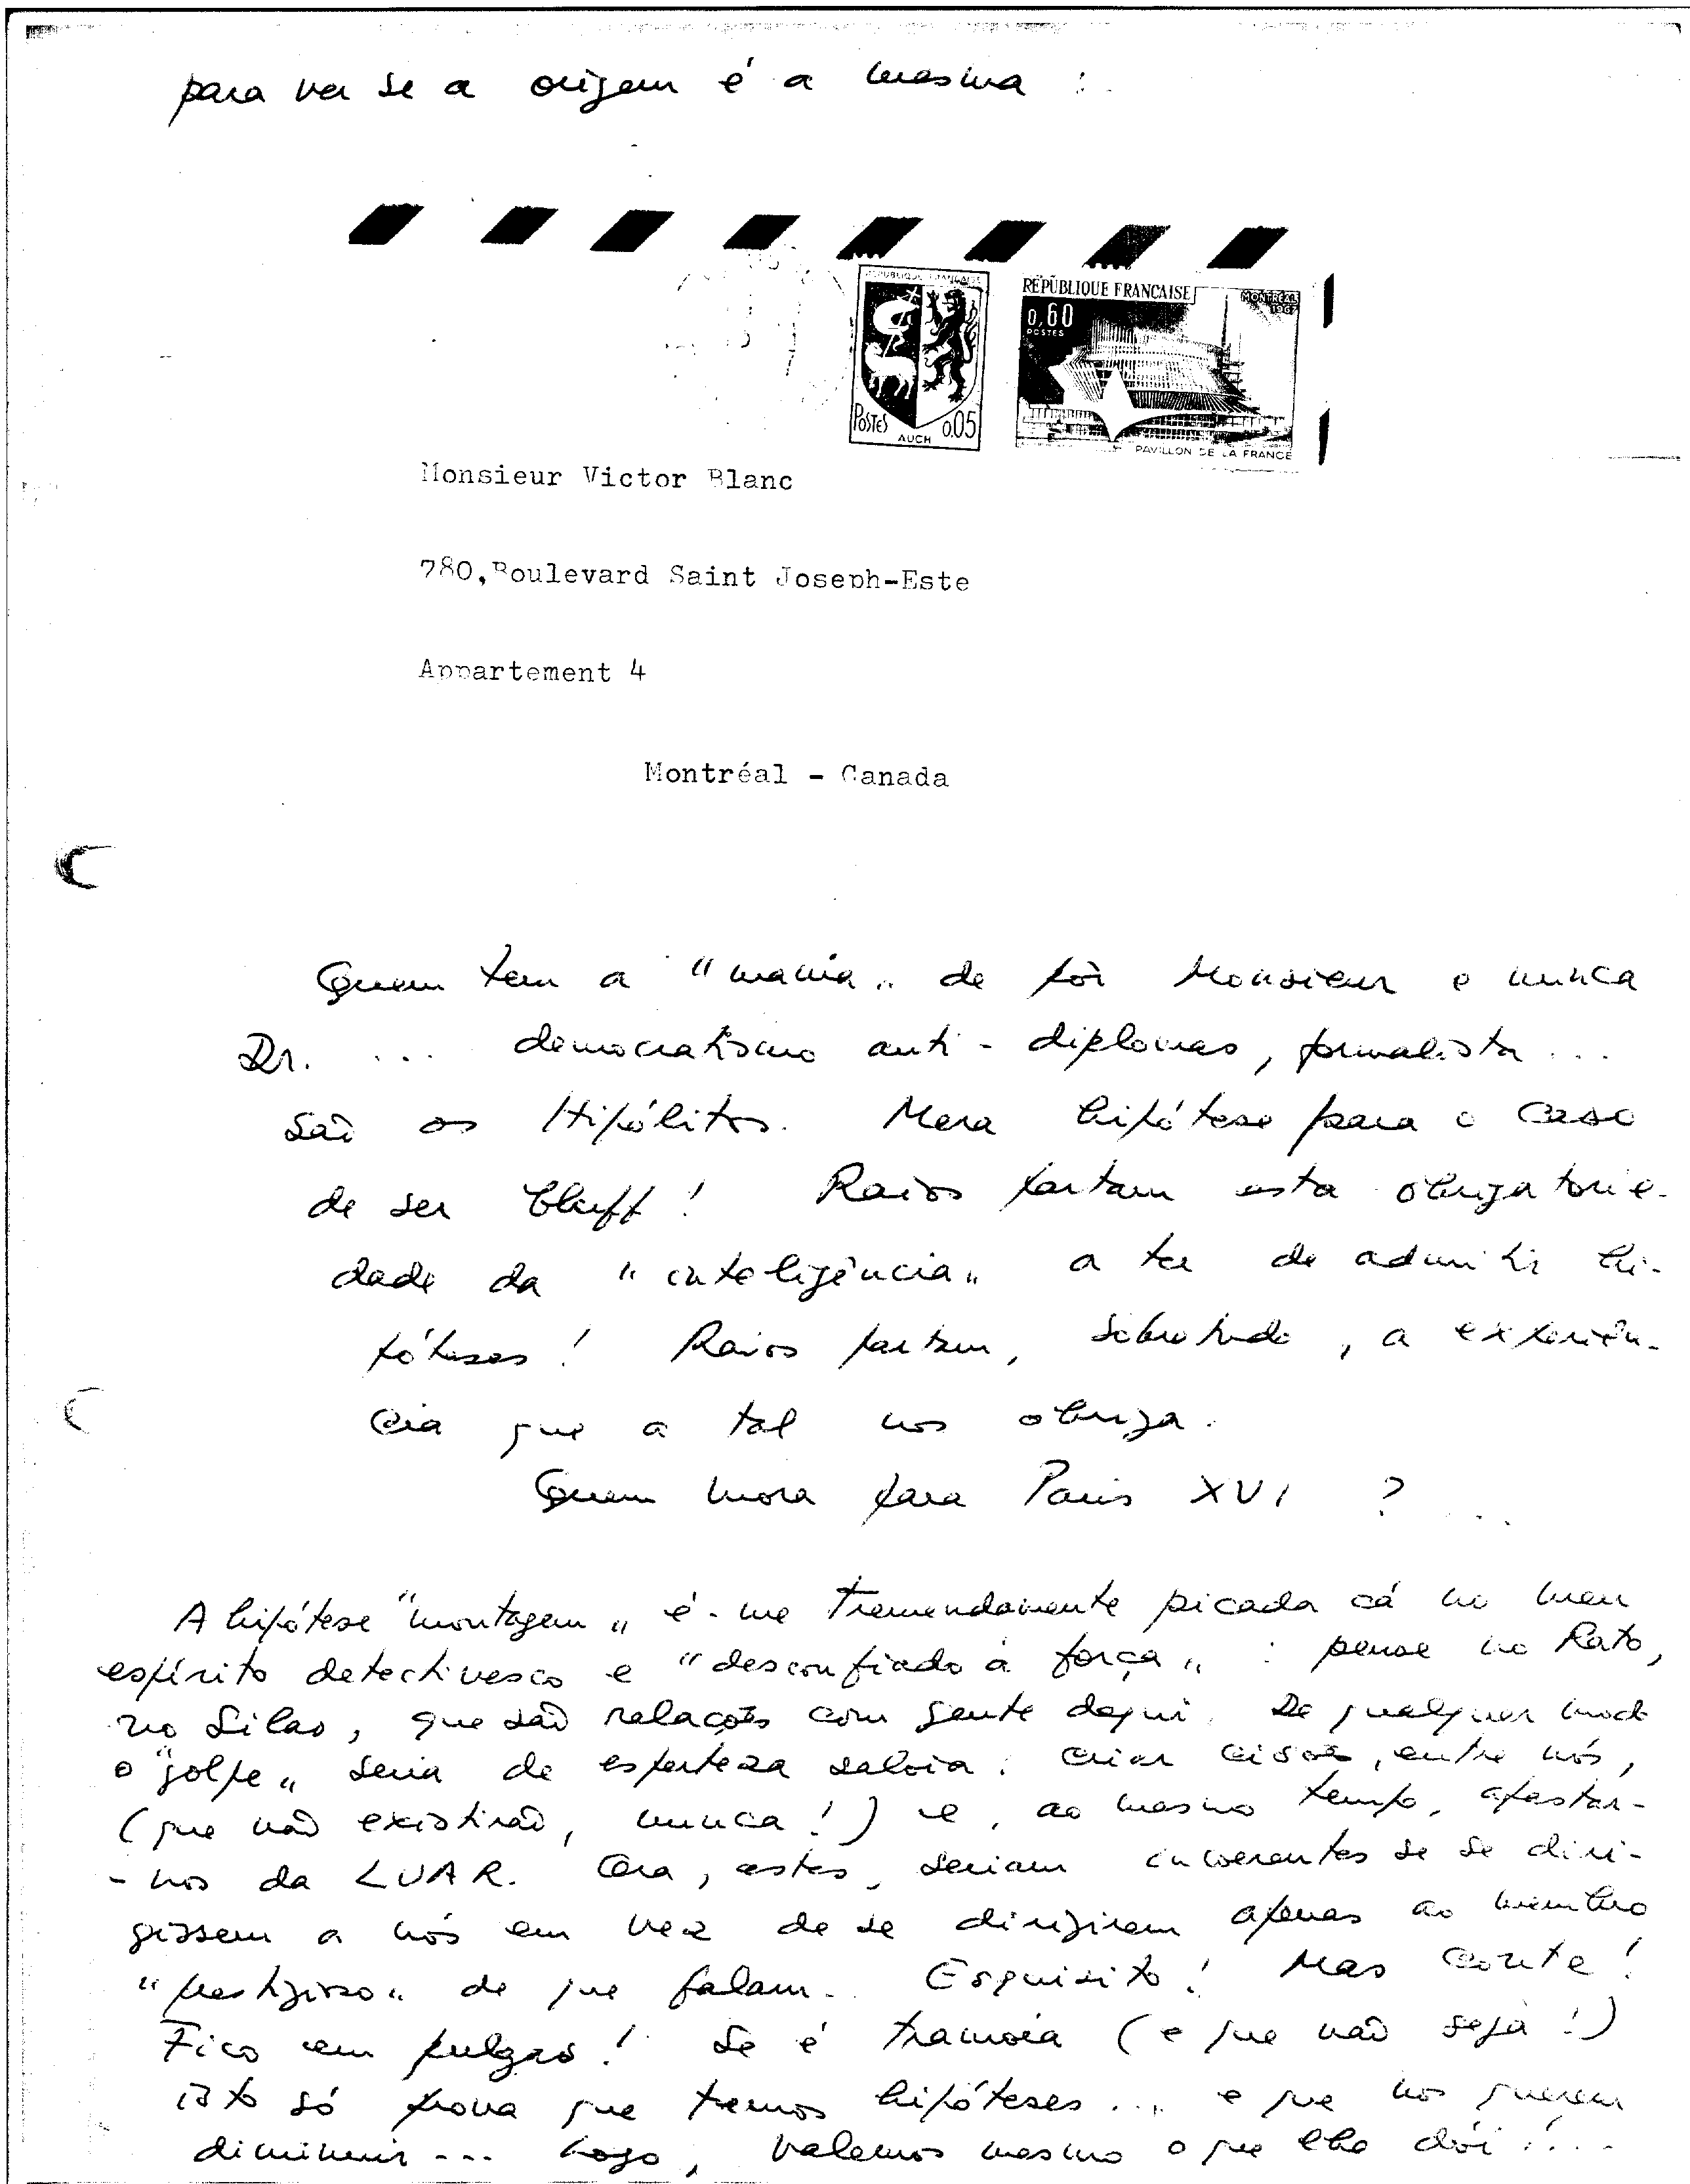 para ver se a origem é a mesma :
REPUBLIQUE FRANÇAISE
POSTES 0.05
AUCH
REPUBLIQUE FRANCAISE
MONTREAL 1967
0,60
POSTES
PAVILLON DE LA FRANCE
Monsieur Victor Blanc
780,Boulevard Saint Joseph-Este
Appartement 4
Montréal - Canada
Quem tem a "mania" de pôr Monsieur e nunca
Dr. ... democratismo anti-diplomas, formalista ...
são os Hipólitos. Mera hipótese para o caso
de ser bluff! Raios partam esta obrigatorie-
dade da "inteligência" a ter de admitir hi-
póteses! Raios partam, sobretudo, a experiên-
cia que a tal nos obriga.
Quem mora para Paris XVI ? ...
A hipótese "montagem" é-me tremendamente picada cá no meu
espírito detectivesco e "desconfiado à força" : pense no Rato,
no Silas, que são relações com gente daqui. De qualquer modo
o "golpe" seria de esperteza saloia: criar cisões, entre nós,
(que não existirão, nunca!) e, ao mesmo tempo, afastar-
-nos da LUAR. Ora, estes, seriam incoerentes se se diri-
gissem a nós em vez de se dirigirem apenas ao membro
"prestigioso" de que falam. Esquisito! Mas conte!
Fico em pulgas! Se é tramoia (e que não seja!)
isto só prova que temos hipóteses ... e que nos querem
diminuir ... Logo, valemos mesmo o que lhe dói! ...